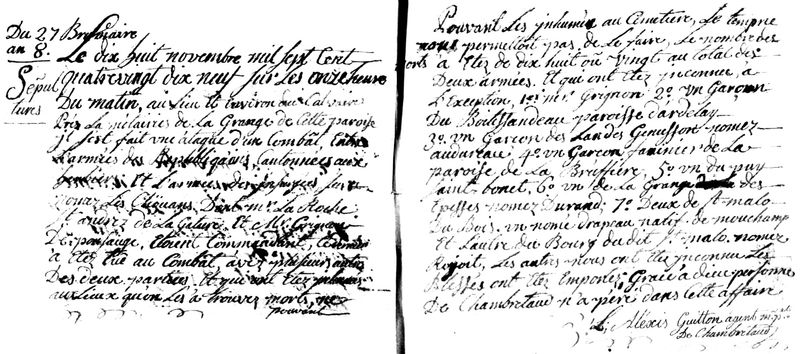 Du 27 Brumaire
an 8.
Sépul
tures
Le dix huit novembre mil sept Cent
quatrevingt dix neuf sur les onze heure
Du matin, au lieu et environ du Calvaire
Pris La métairie de La Grange de Cette paroise
il s'est fait vne ataque d'un Combat, Entre
L'armées des Républiquains Cantonnées aux
et L'armées des insurgés sur
nomez Les Chouans, Dont mr. La Roche
St. andré de La Gature, et Mr. Grignon
De pousauge, étoient Commandant, Ce dernier
à Etez tué au Combat avec plusieurs autres
Des deux parties, et qui ont Etez
aux Lieux qu'on Les à trouvez morts, nez
pouvant
Pouvant Les inhumer au Cemetière, Le tempne
nous permettoit pas de Le faire, Le nombre des
morts à Etez de dix huit ou vingt au total des
Deux armées, Et qui ont Etez inconnu, a
L'Exception, 1o. mr. Grignon 2o. vn Garçon
Du Boitissandeau paroisse d'ardelay
3o. vn Garçon des Landes Genusson nomez
audureau, 4o. vn Garçon farinier de La
paroise de La Bruffière, 5o. vn du puy
Saint bonet, 6o. vn de La Grange des
Epesses nomez Durand, 7o. Deux de St. malo
Du Bois, vn nomé drapeau natif de mouchamp
Et L'autre du Bourg du dit St. malo nomez
Les autres nous ont Etez inconnu Les
Blessés ont Etez Emportés, Grace à dieu personne
De Chambretaud n'a péré dans Cette affaire
L. Alexis Guitton agent mpal
De Chambretaud